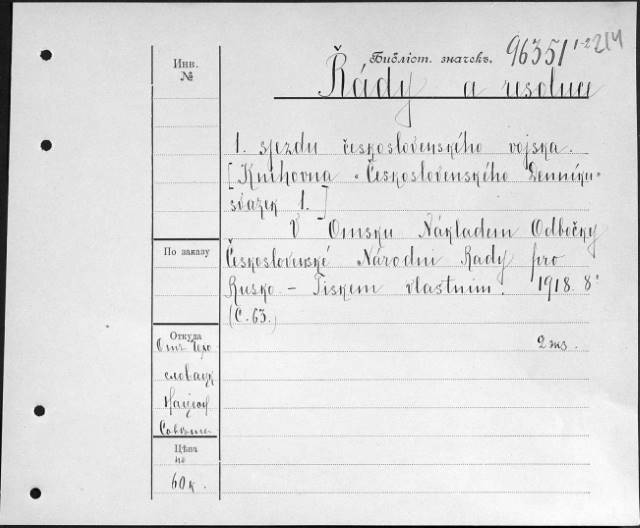 Инв.
№
Библіот. значекъ. 96351 1-2 214
Řády a resoluce
1. sjezdu československého vojska.
[Knihovna "Československého Denníku"
svazek 1.]
V Omsku Nákladem Odbočky
По заказу
Československé Národní Rady pro
Rusko - Tiskem vlastním. 1918. 8°
(C. 63.)
Откуда
Отъ Чехо
словацк
Націон
Совѣта
2 экз.
Цѣна
но
60 к.